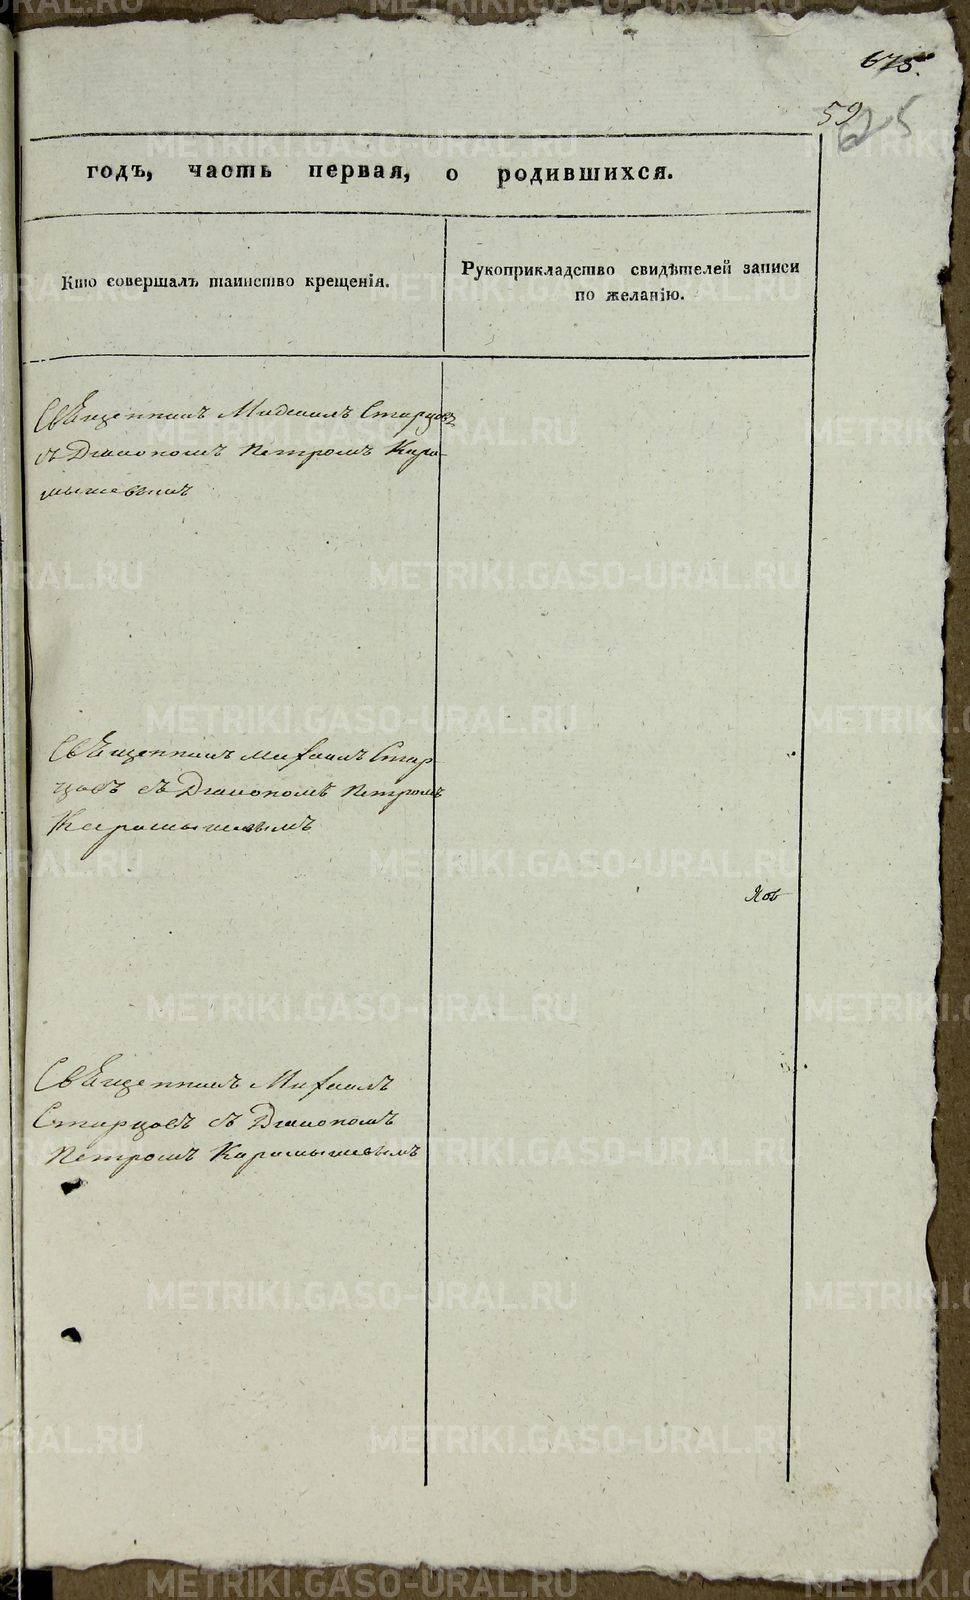 675.
59
625
годъ, часть первая, о родившихся.
Кто совершалъ таинство крещенія.
Рукоприкладство свидѣтелей записи
по желанію.
Священникъ Михаилъ Старцовъ
съ Діакономъ Петромъ Кара-
мышевымъ
Священникъ Михаилъ Стар
цовъ съ Діакономъ Петромъ
Карамышевымъ
Священникъ Михаилъ
Старцовъ съ Діакономъ
Петромъ Карамышевымъ
METRIKI.GASO-URAL.RU